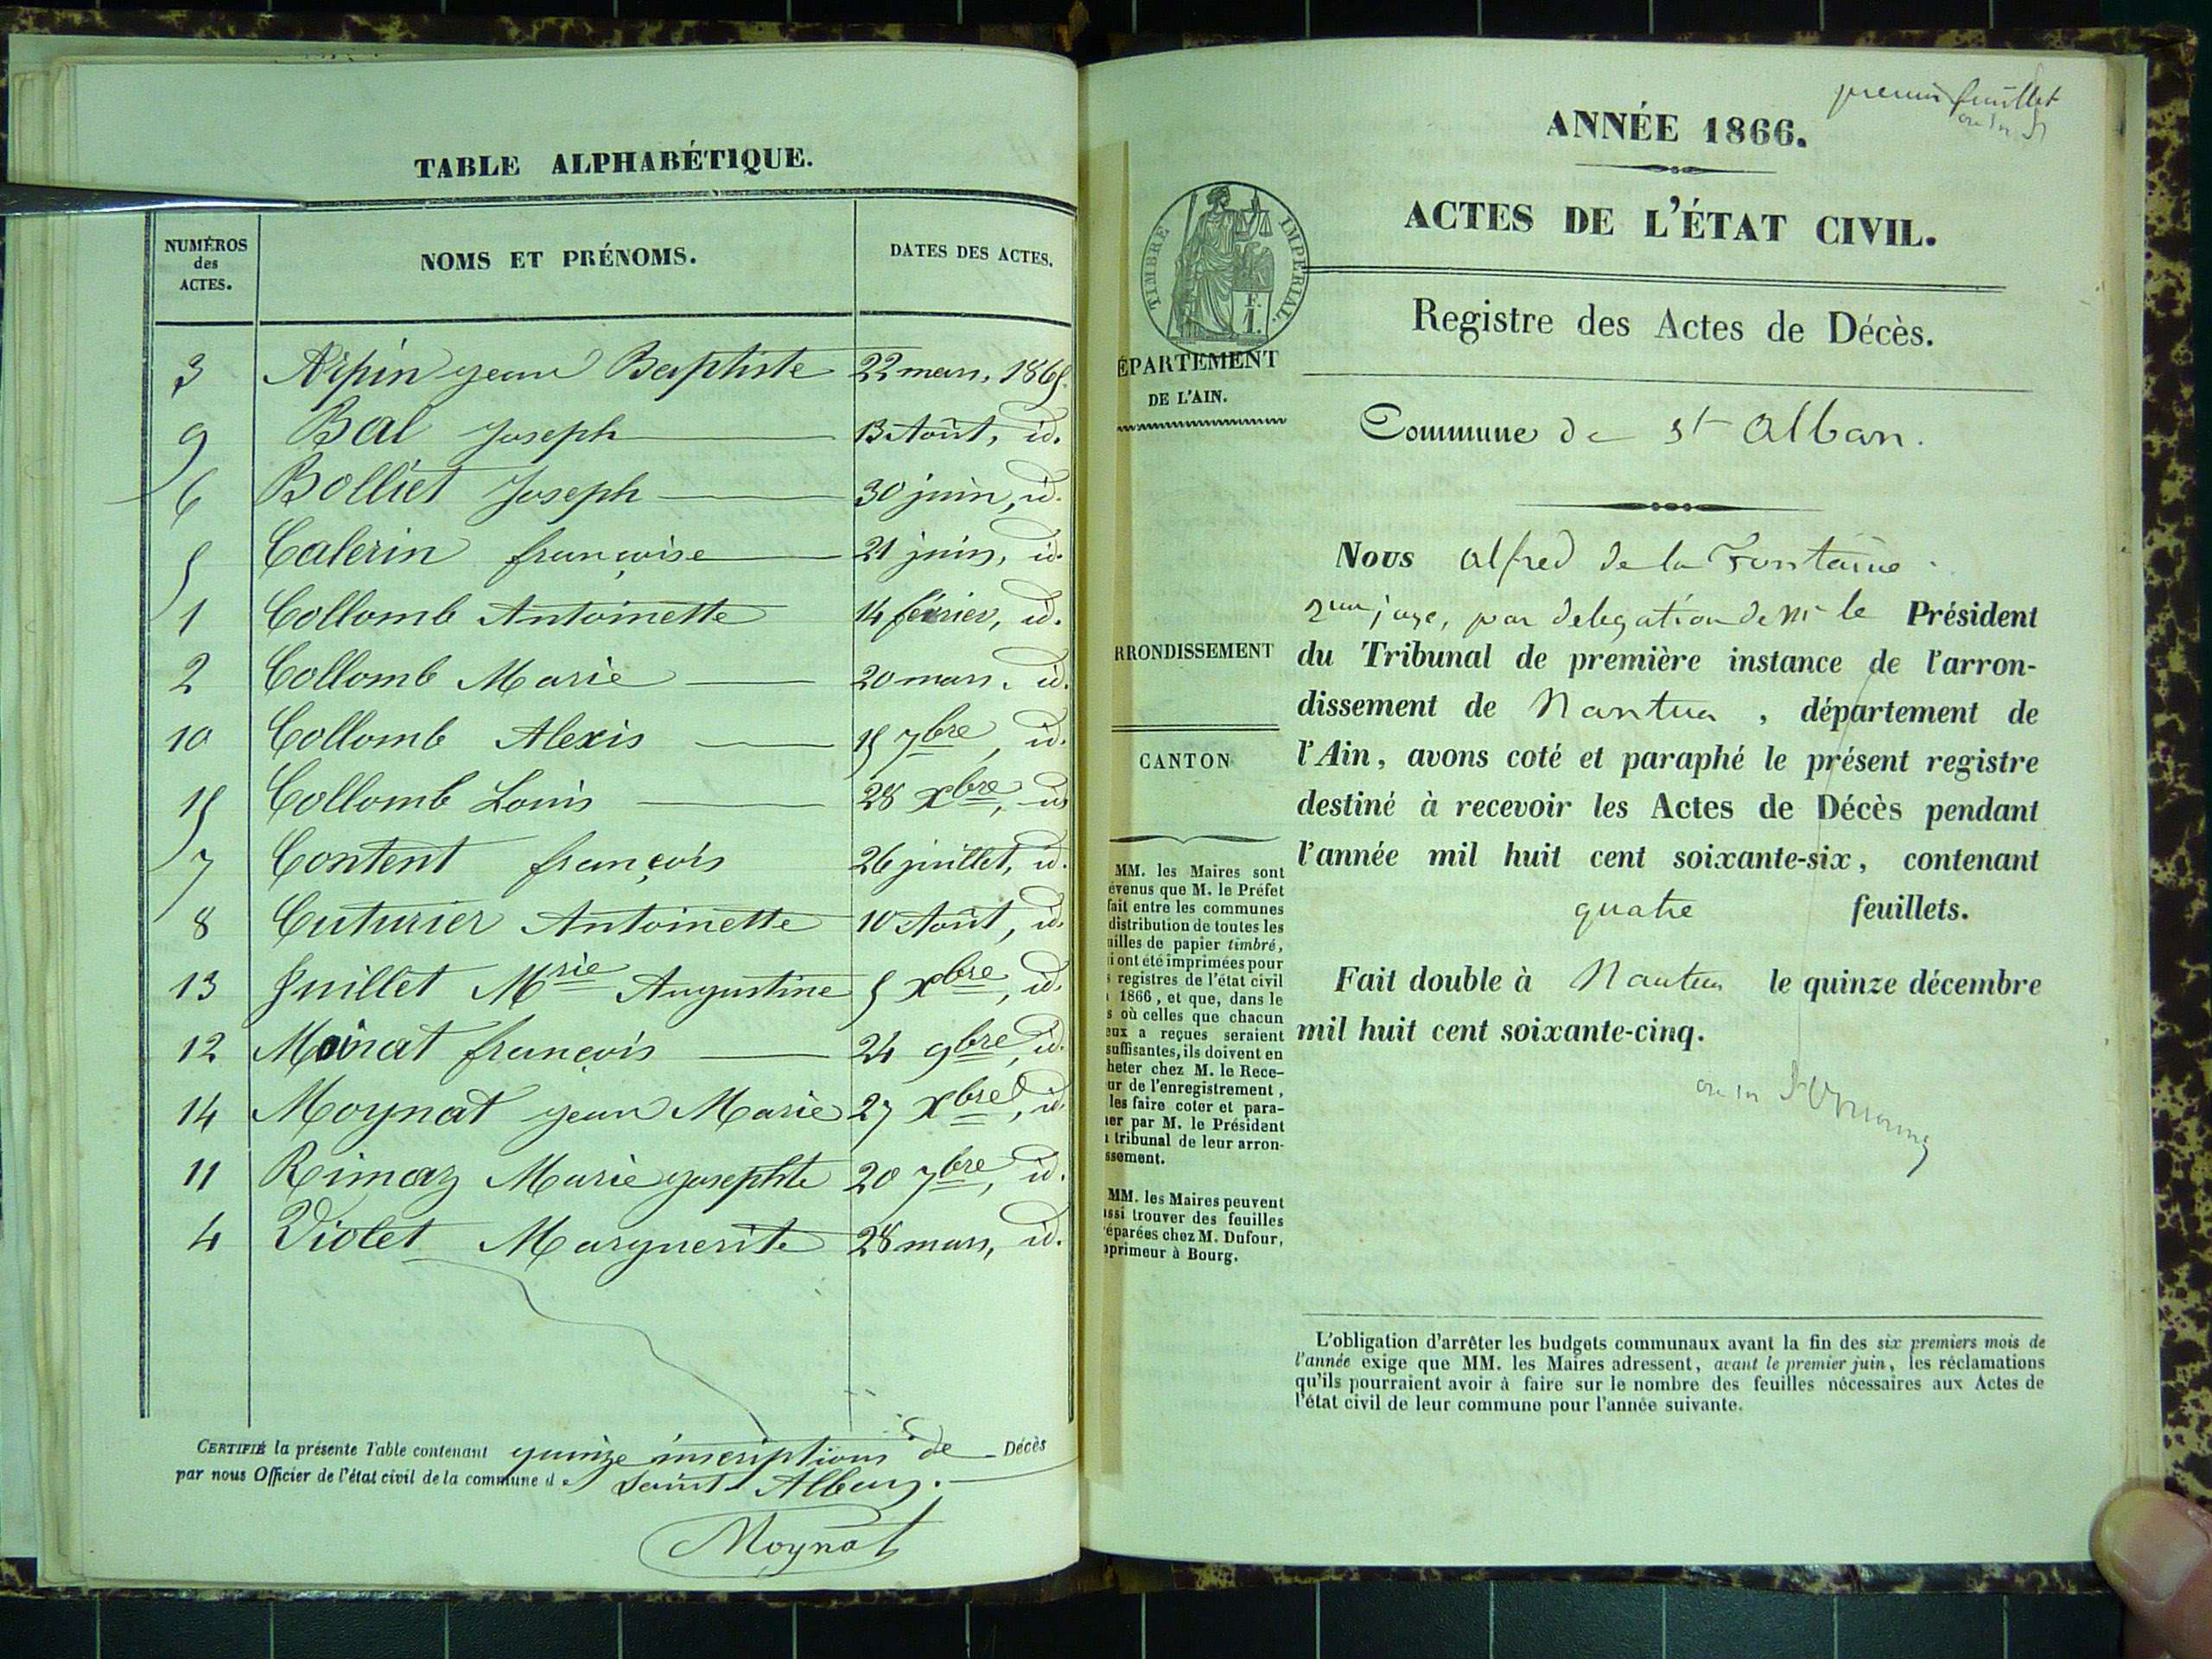 TABLE ALPHABÉTIQUE.
NUMÉROS des ACTES. NOMS ET PRÉNOMS. DATES DES ACTES.
3 Arpin jean Baptiste 22 mars, 1865.
9 Bal Joseph 13 Août, id.
6 Bolliet Joseph 30 juin, id.
5 Calerin françoise 21 juin, id.
1 Collomb Antoinette 14 février, id.
2 Collomb Marie 20 mars, id.
10 Collomb Alexis 15 7bre, id.
15 Collomb Louis 28 Xbre, id
7 Content françois 26 juillet, id.
8 Cuturier Antoinette 10 Août, id.
13 Juillet Mrie Augustine 5 Xbre, id.
12 Moinat françois 24 9bre, id.
14 Moynat jean Marie 27 Xbre, id.
11 Rimaz Marie josephte 20 7bre, id.
4 Violet Marguerite 28 mars, id.
CERTIFIÉ la présente Table contenant quinze inscriptions de Décès
par nous Officier de l'état civil de la commune de Saint Alban.
Moynat
premier feuillet
ANNÉE 1866.
ACTES DE L'ÉTAT CIVIL.
TIMBRE IMPÉRIAL.
F.
1.
Registre des Actes de Décès.
ÉPARTEMENT
DE L'AIN.
Commune de St Alban.
Nous Alfred de la Fontaine
juge, par délégation de Mr le Président
du Tribunal de première instance de l'arron-
dissement de Nantua, département de
l'Ain, avons coté et paraphé le présent registre
destiné à recevoir les Actes de Décès pendant
l'année mil huit cent soixante-six, contenant
quatre feuillets.
Fait double à Nantua le quinze décembre
mil huit cent soixante-cinq.
RRONDISSEMENT
CANTON
MM. les Maires sont
évenus que M. le Préfet
fait entre les communes
distribution de toutes les
uilles de papier timbré,
i ont été imprimées pour
s registres de l'état civil
1866, et que, dans le
s où celles que chacun
eux a reçues seraient
suffisantes, ils doivent en
heter chez M. le Rece-
ur de l'enregistrement,
les faire coter et para-
er par M. le Président
tribunal de leur arron-
ssement.
MM. les Maires peuvent
ssi trouver des feuilles
éparées chez M. Dufour,
primeur à Bourg.
L'obligation d'arrêter les budgets communaux avant la fin des six premiers mois de
l'année exige que MM. les Maires adressent, avant le premier juin, les réclamations
qu'ils pourraient avoir à faire sur le nombre des feuilles nécessaires aux Actes de
l'état civil de leur commune pour l'année suivante.